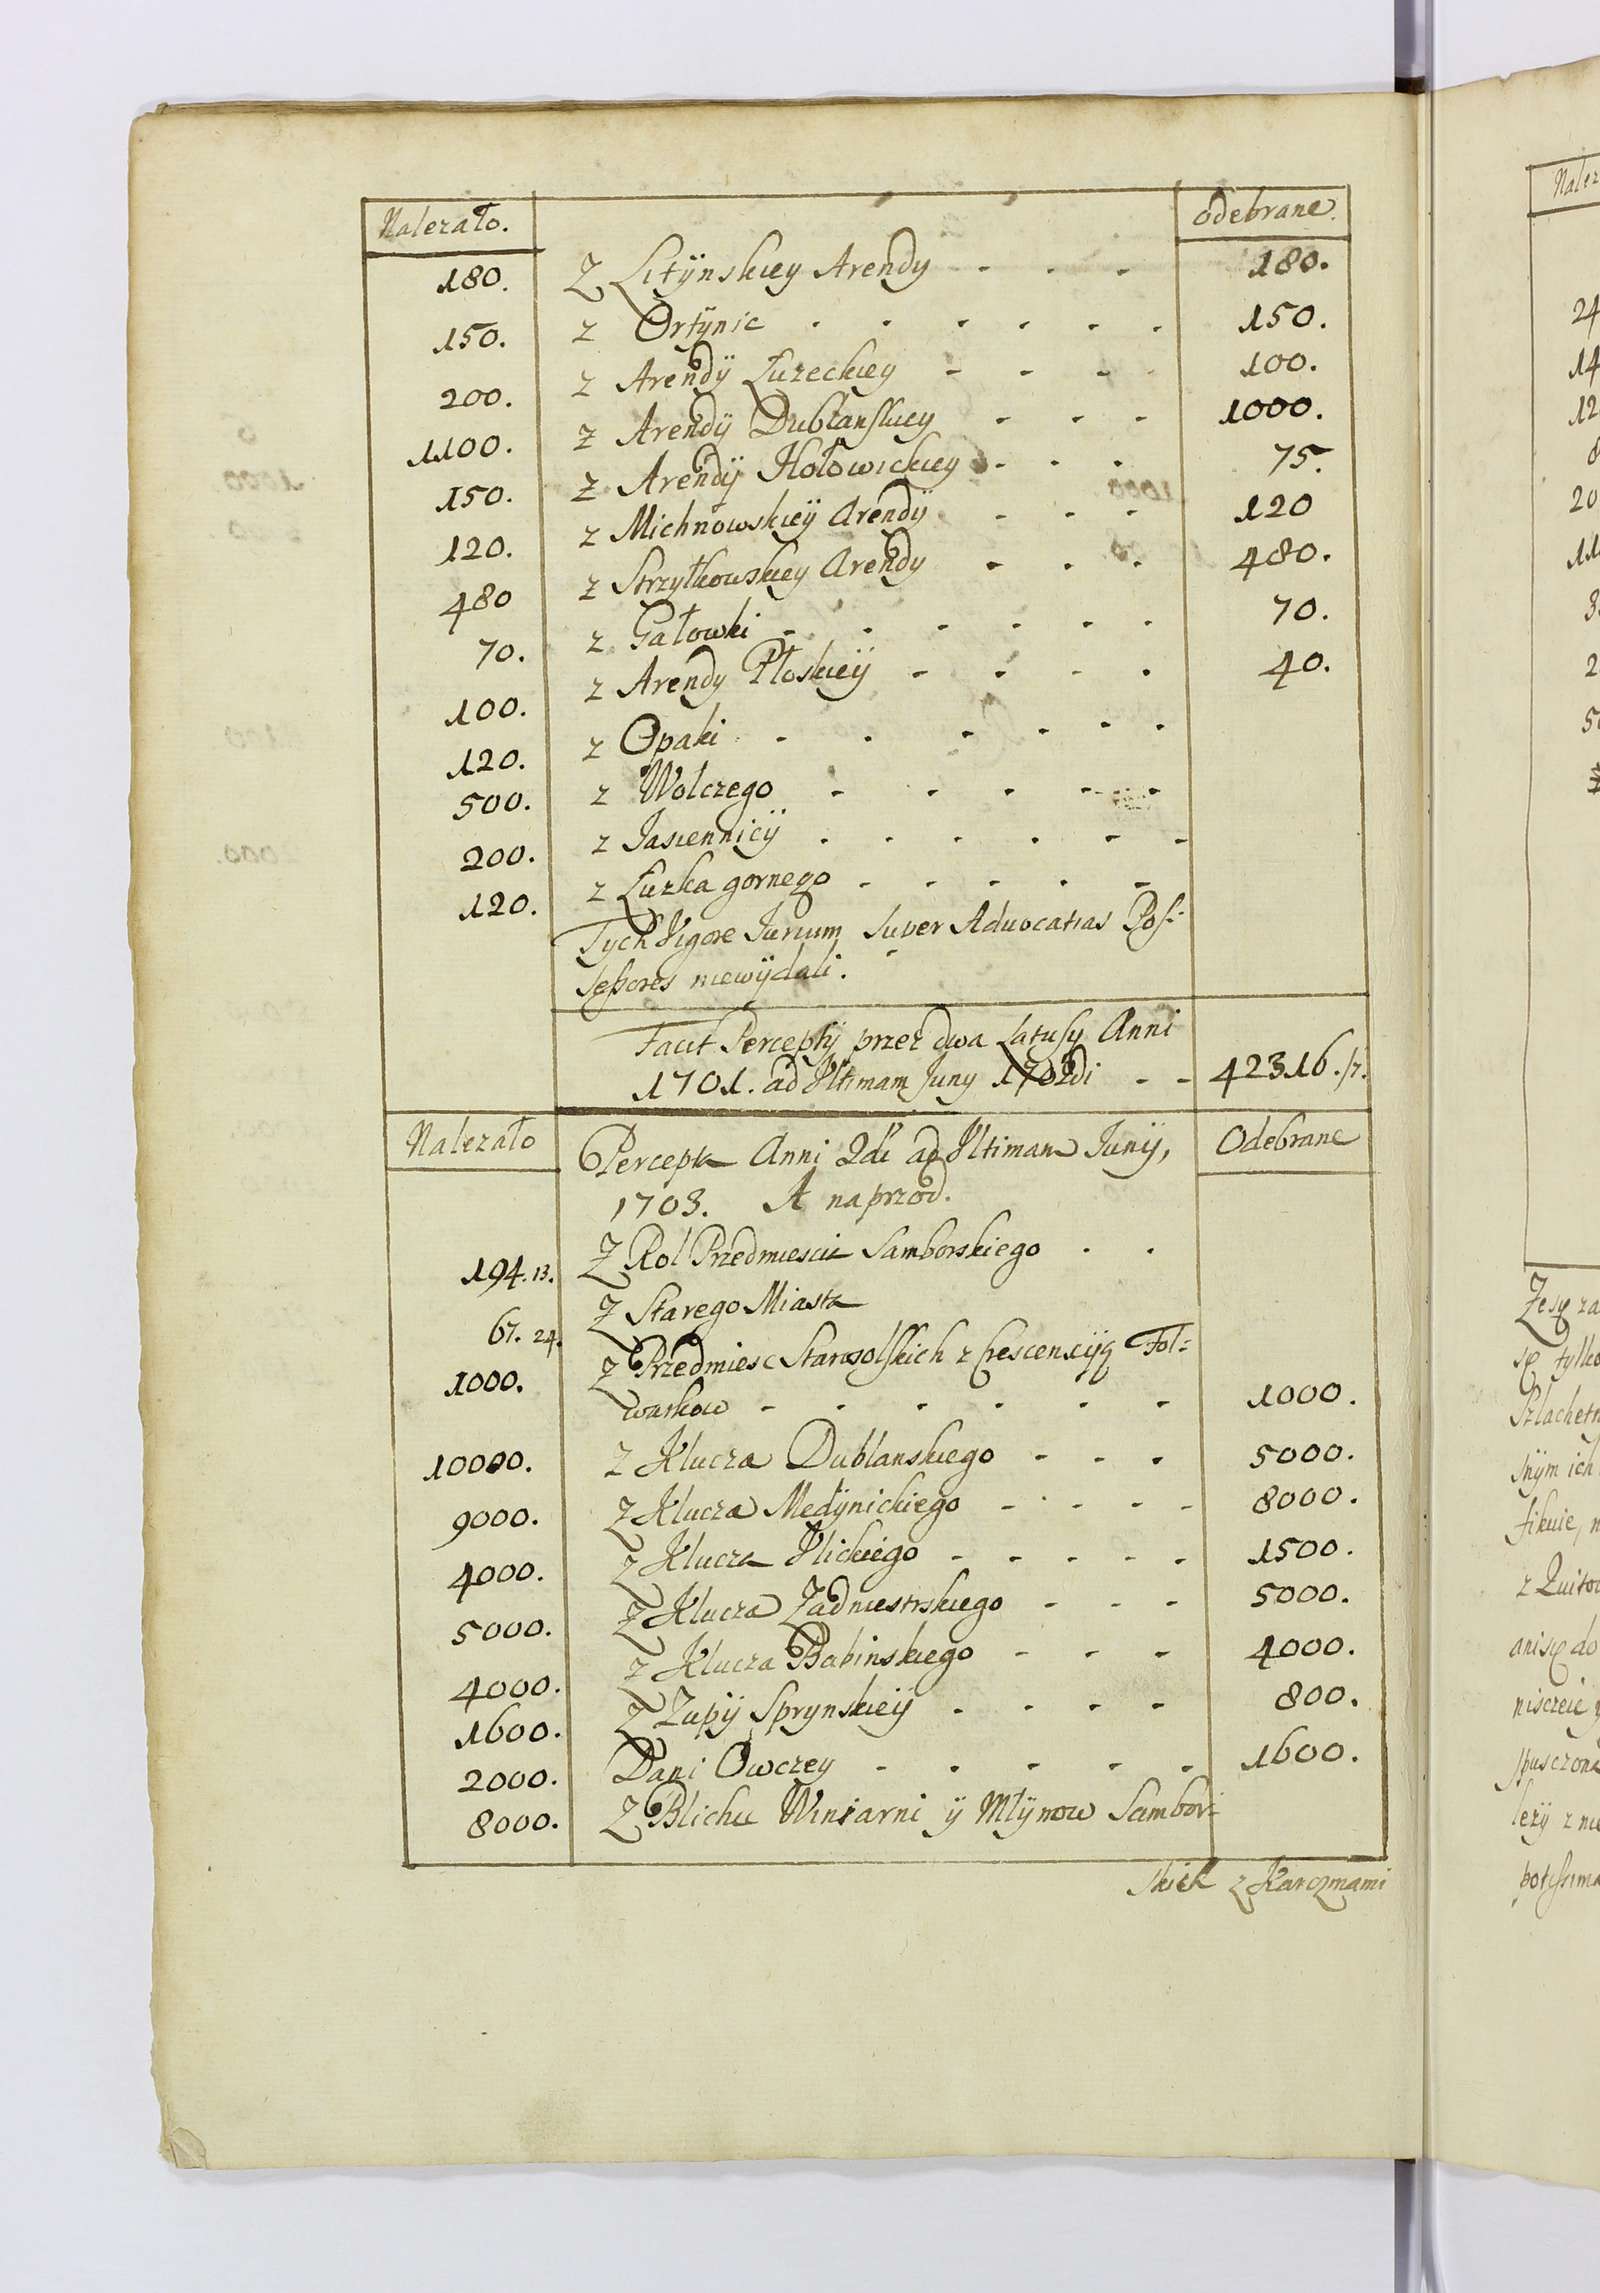 Nalezało. Odebrane.
180. Z Litÿnskiey Arendy - - - 180.
150. z Ortÿnic - - - - - - 150.
200. z Arendÿ Łuzeckiey - - - - 100.
1100. z Arendÿ Dublanskiey - - - 1000.
150. z Arendÿ Hołowickiey - - - 75.
120. z Michnowskieÿ Arendÿ - - - 120
480 z Strzyłkowskiey Arendy - - - 480.
70. z Gałowki - - - - - - 70.
100. z Arendy Płoskieÿ - - - - 40.
120. z Opaki - - - - - -
500. z Wolczego - - - - -
200. z Jasiennicÿ - - - - - -
120. z Łuzka gornego - - - - -
Tych Vigore Iurium super Advocatias Pos=
sessores niewÿdali.
Facit Perceptÿ przez dwa Latusy Anni
1701. ad Ultimam Juny 1702di - - 42316./7.
Nalezało Percepta Anni 2di ad Ultimam Junÿ, Odebrane
1703. A naprzod.
194.13. Z Rol Przedmiescia Samborskiego - -
67.24. Z Starego Miasta
1000. Z Przedmiesc Starosolskich z Crescencÿą Fol=
warkow - - - - - - 1000.
10000. Z Klucza Dublanskiego - - - 5000.
9000. Z Klucza Medÿnickiego - - - - 8000.
4000. Z Klucza Ulickiego - - - - - 1500.
5000. Z Klucza Zadniestrskiego - - - 5000.
4000. Z Klucza Babinskiego - - - 4000.
1600. Z Zupÿ Sprynskieÿ - - - - 800.
2000. Dani Owczey - - - - - 1600.
8000. Z Blichu Winiarni ÿ Młÿnow Sambor=
skich z Karczmami
Nalez
24
14
12
8
20
11
3
2
5
Zesę za
sę tylko
Szlachetn
snÿm ich
fikuie, n
z Kwitow
anisę do
niszcie y
spuszczona
lezÿ z nie
potissima